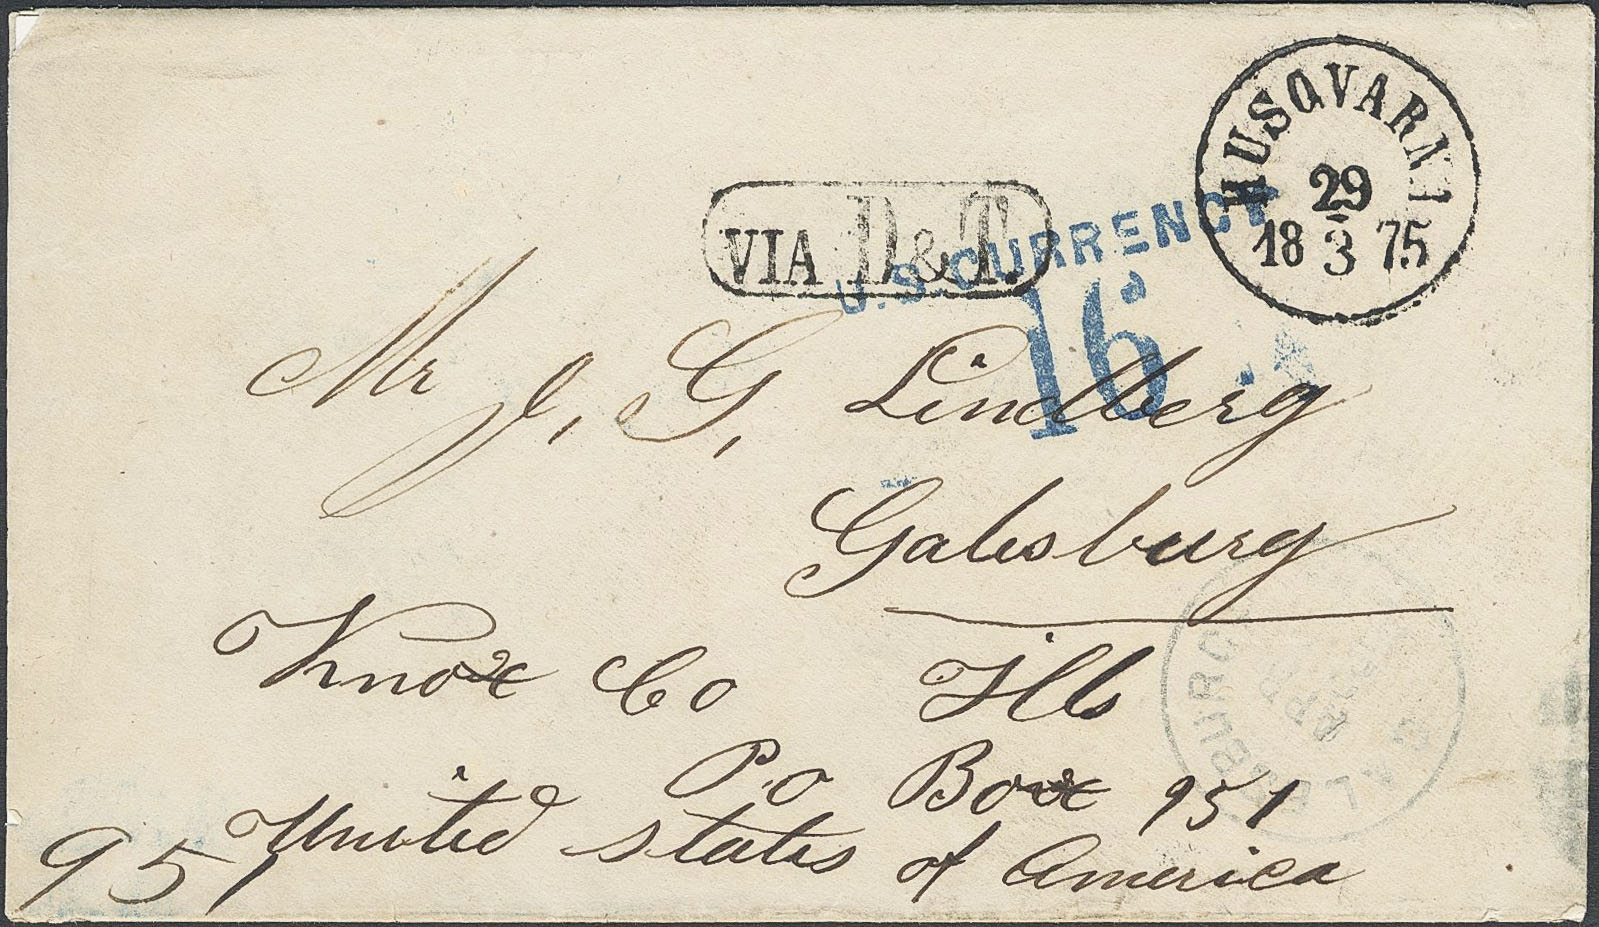 HUSQVARNA
29
18 3 75
VIA D. & T.
U.S. CURRENCY
16
Mr J. G. Lindberg
Galesburg
Knox Co Ills
P.o Box 951
United states of America
951
GALESBURG
APR